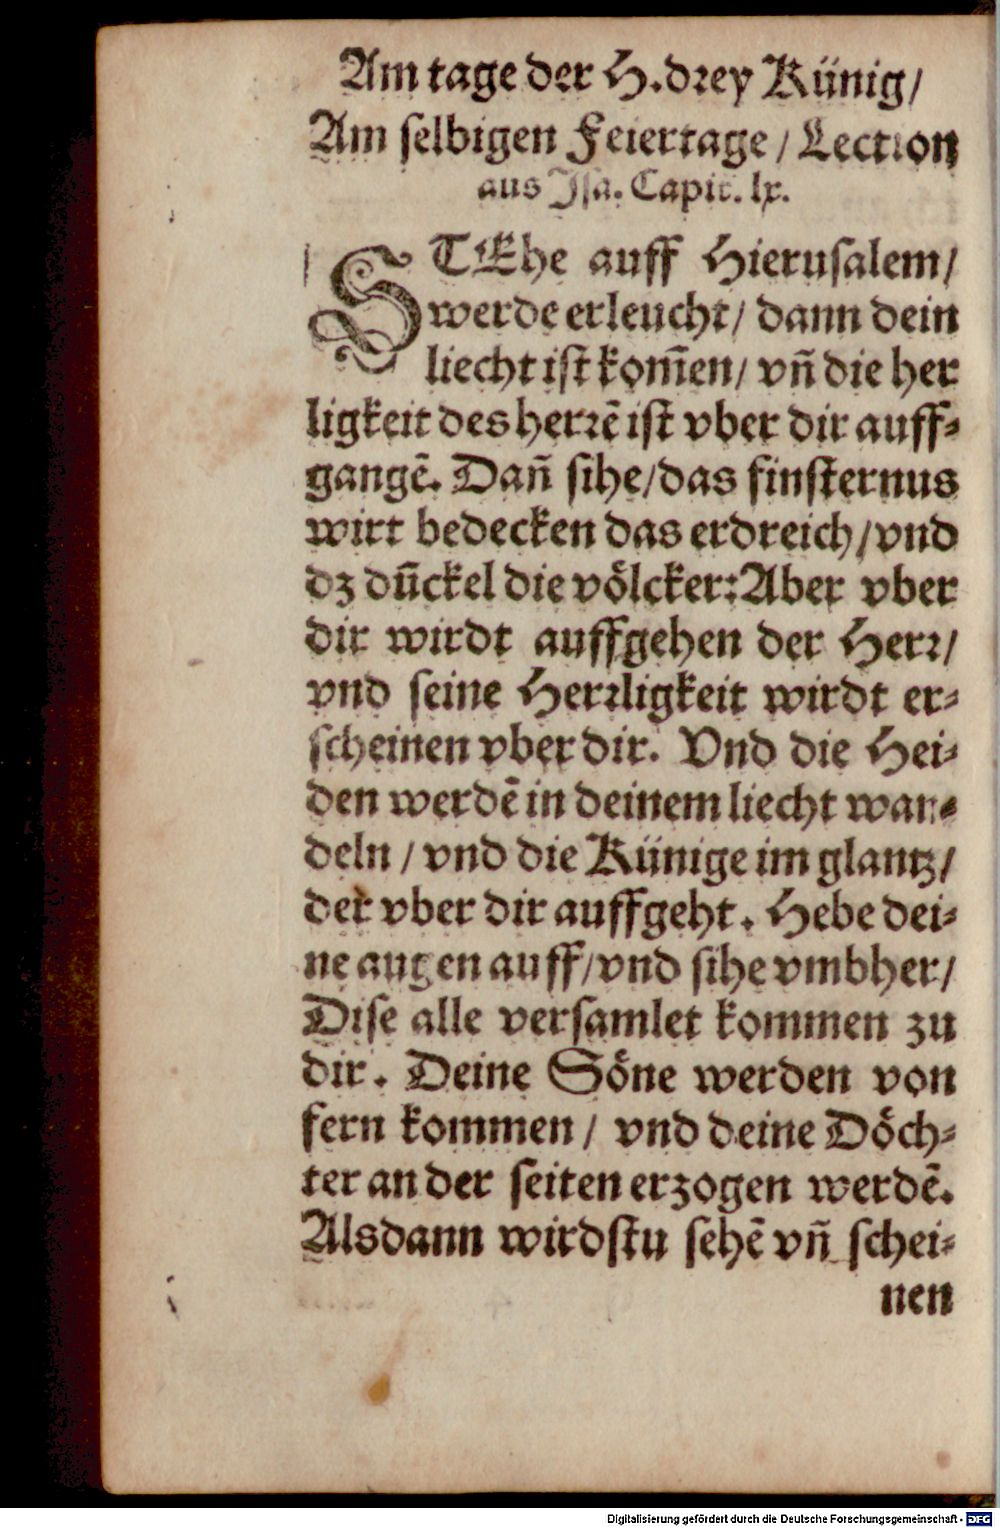 Am tage der H. drey Künig/
Am selbigen Feiertage / Lection
aus Jsa. Capit. lx.
STEhe auff Hierusalem/
werde erleucht/ dann dein
liecht ist kom̄en/ vn̄ die her
ligkeit des herrē ist vber dir auff⸗
gangē. Dan̄ sihe/das finsternus
wirt bedecken das erdreich/vnd
dz dūckel die völcker: Aber vber
dir wirdt auffgehen der Herr/
vnd seine Herrligkeit wirdt er⸗
scheinen vber dir. Vnd die Hei⸗
den werdē in deinem liecht wan⸗
deln / vnd die Künige im glantz/
der vber dir auffgeht. Hebe dei⸗
ne augen auff/vnd sihe vmbher/
Dise alle versamlet kommen zu
dir. Deine Söne werden von
fern kommen / vnd deine Döch⸗
ter an der seiten erzogen werdē.
Alsdann wirdstu sehē vn̄ schei⸗
nen
Digitalisierung gefördert durch die Deutsche Forschungsgemeinschaft - DFG